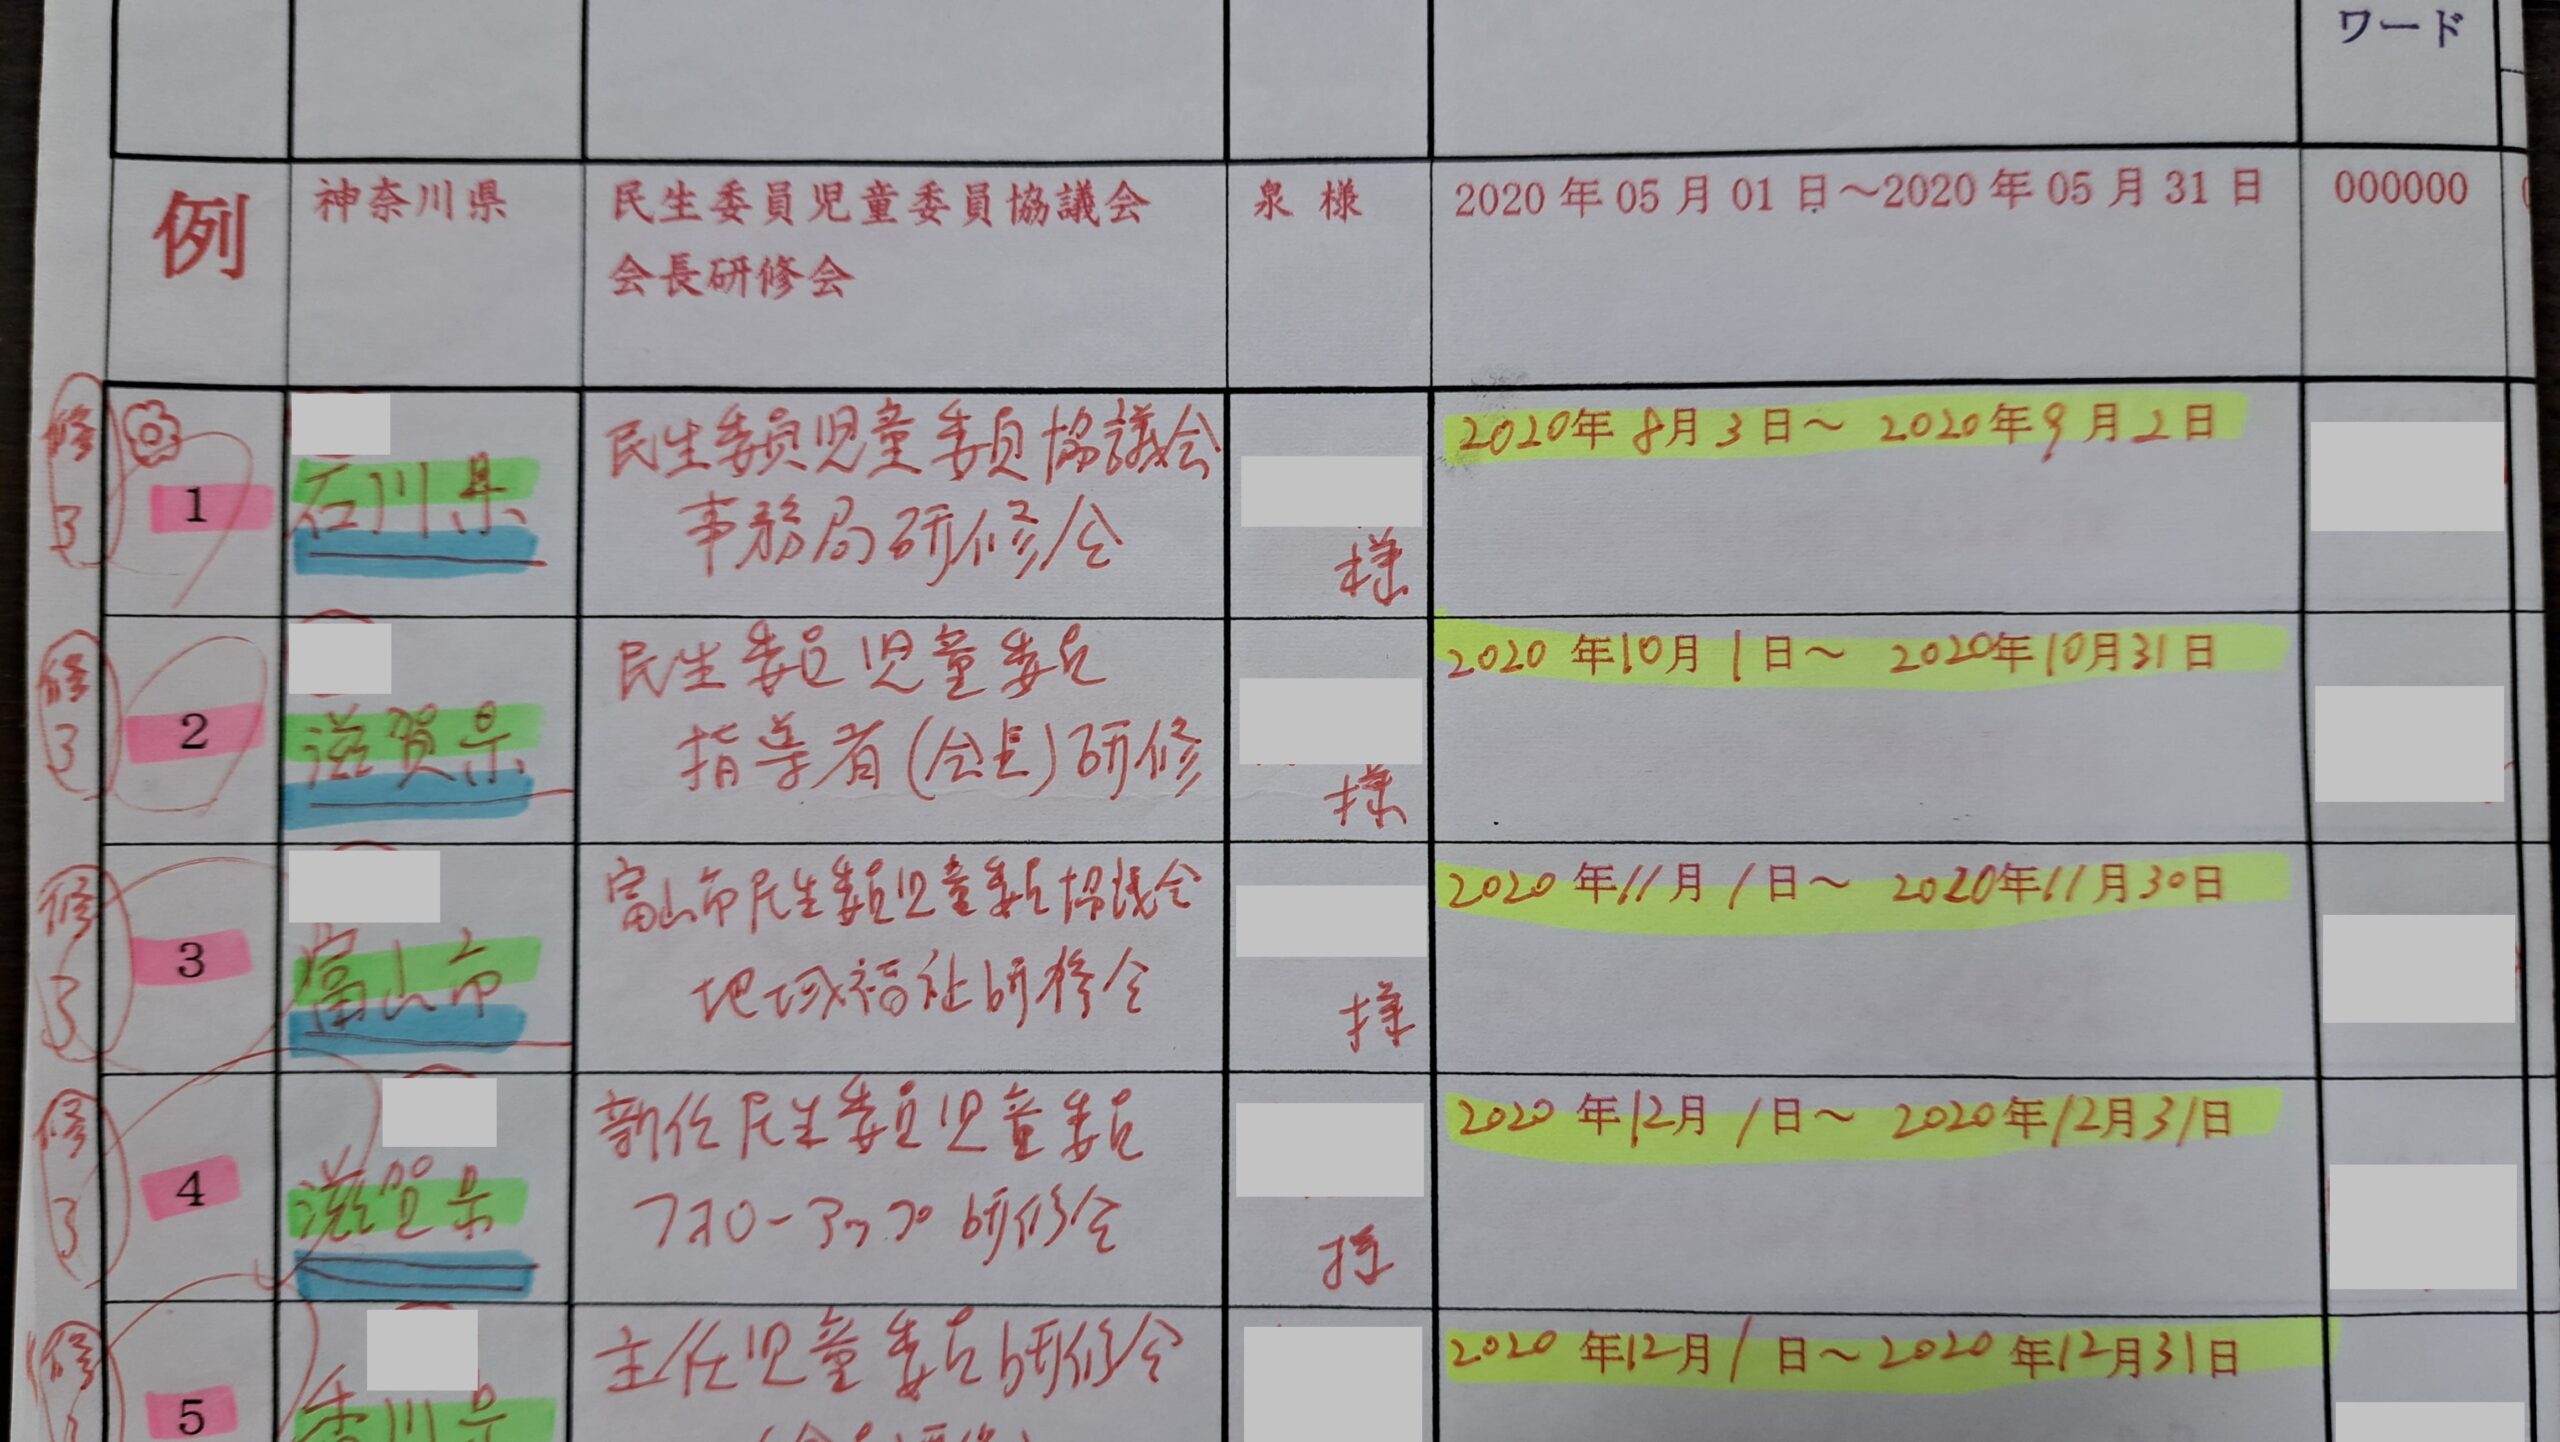 ワード
例 神奈川県 民生委員児童委員協議会 泉 様 2020 年 05 月 01 日～2020 年 05 月 31 日 000000
会長研修会
修 3
1 石川県 民生委員児童委員協議会 2020年 8月 3 日～ 2020年 9 月 2 日
事務局研修会 様
修 3
2 滋賀県 民生委員児童委員 2020 年10月 1 日～ 2020年10月31日
指導者(会長)研修 様
修 3
3 富山市 富山市民生委員児童委員協議会 2020 年11月 1 日～ 2020年11月30日
地域福祉研修会 様
修 3
4 滋賀県 新任民生委員児童委員 2020 年12月 1日～ 2020年12月31日
フォローアップ研修会 様
修
5 香川県 主任児童委員研修会 2020 年12月 1 日～2020 年12月31日